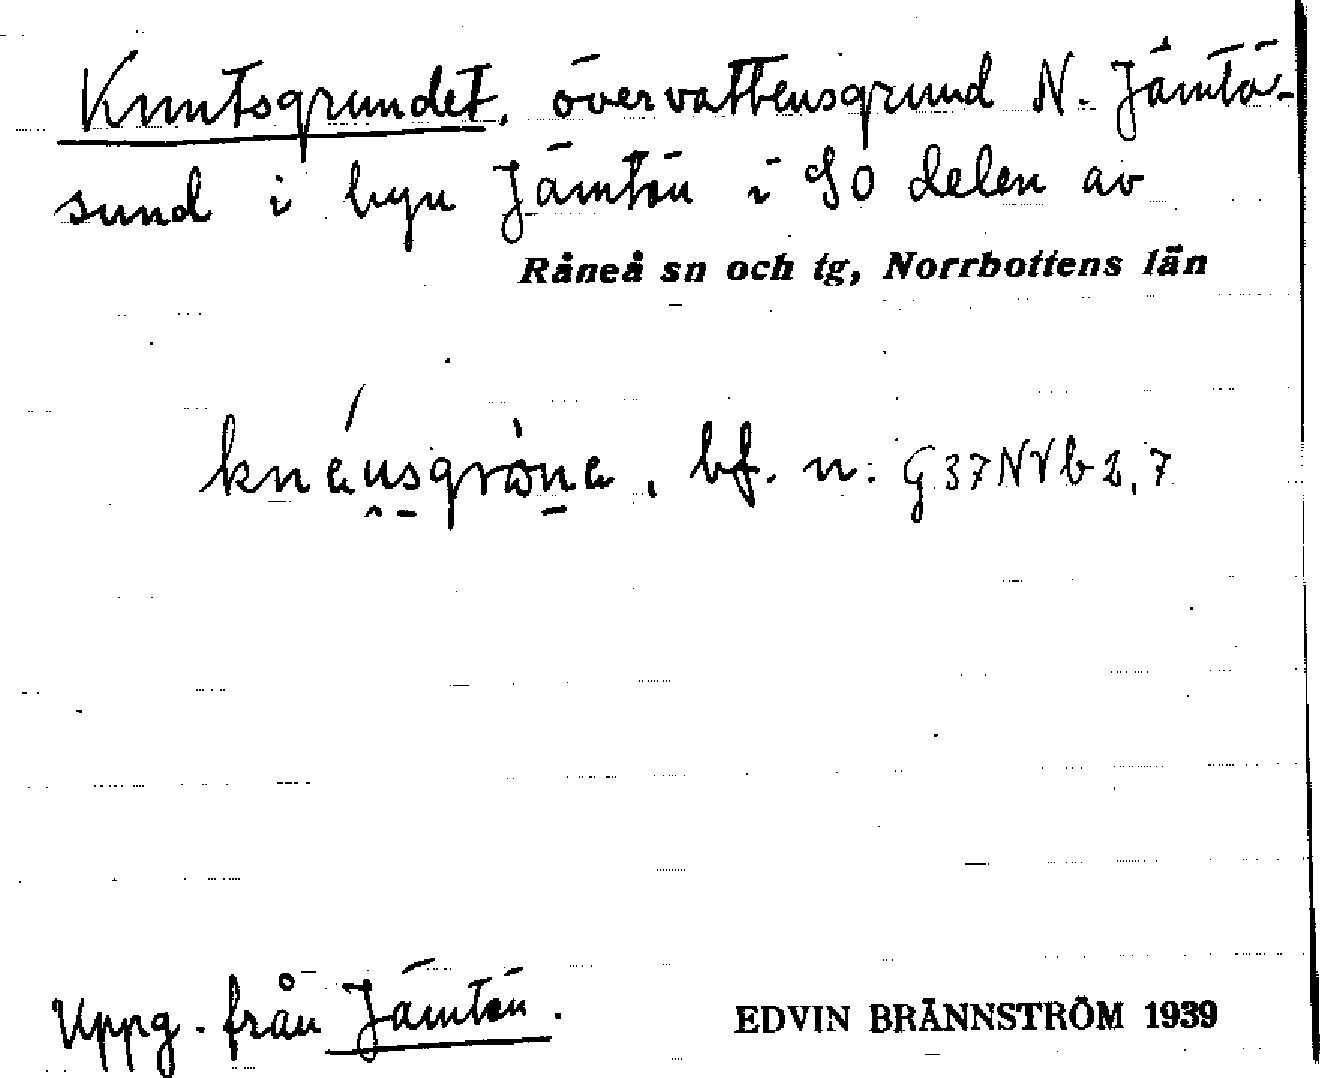 Knutsgrundet, övervattensgrund N. Jämtö-
sund i byn Jämtön i SO delen av
Råneå sn och tg, Norrbottens län
bf. n. G37NVb2,7
Uppg. från Jämtön.
EDVIN BRÄNNSTRÖM 1939